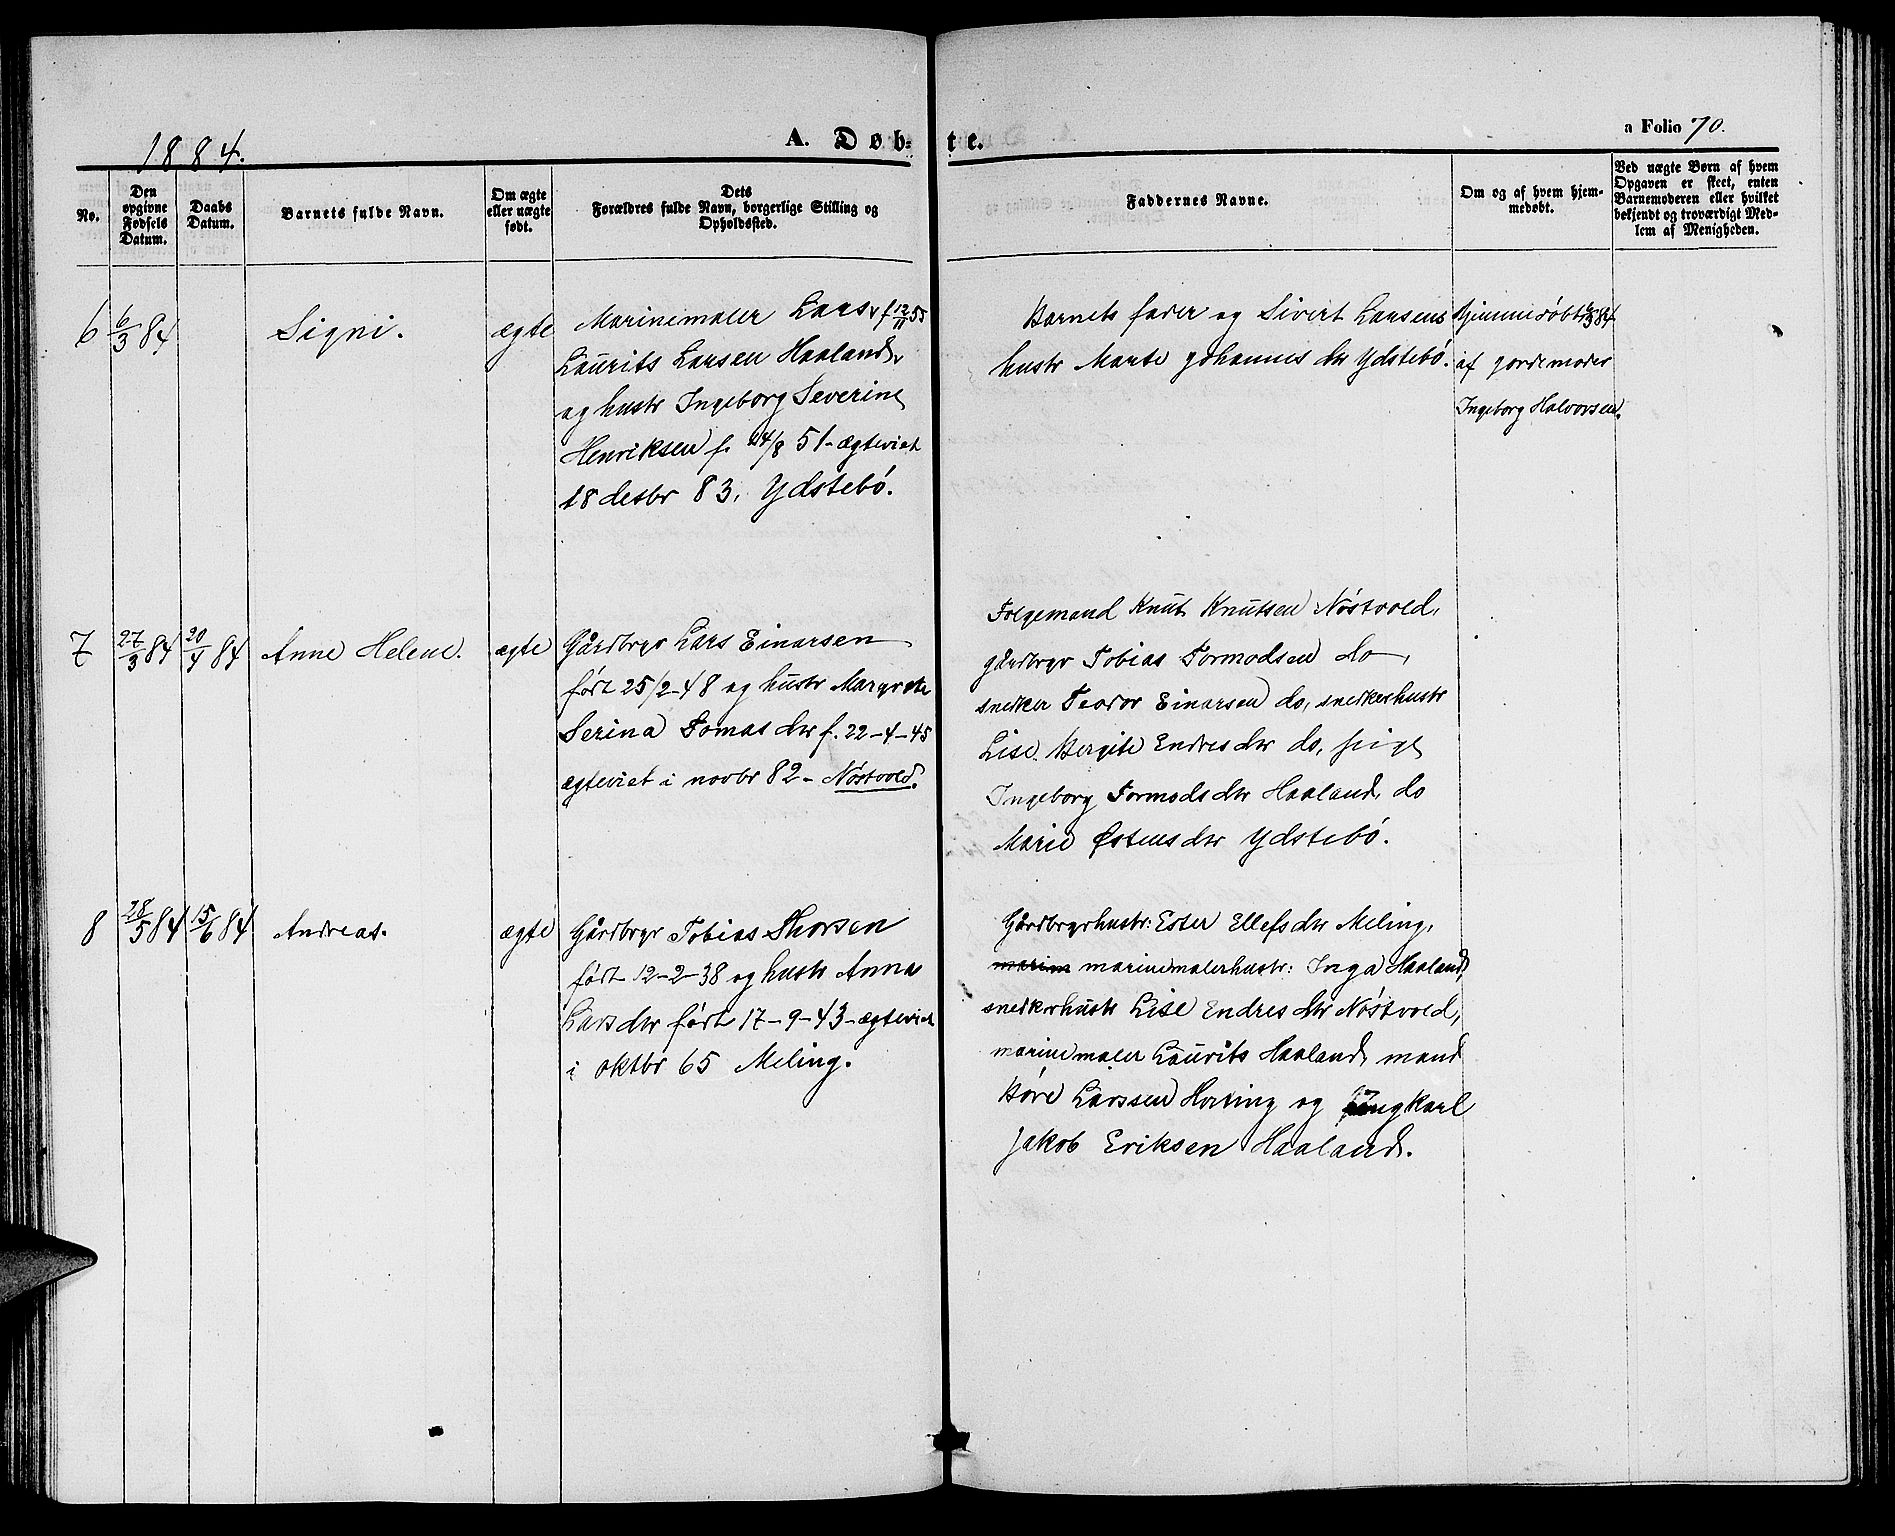 1884.
A. Døb-
te.
a Folio 70.
No.
Den
opgivne
Fødsels
Datum.
Daabs
Datum.
Barnets fulde Navn.
Om ægte
eller uægte
født.
Dets
Forældres fulde Navn, borgerlige Stilling og
Opholdssted.
Faddernes Navne.
Om og af hvem hjem-
medøbt.
Ved uægte Børn af hvem
Opgaven er skeet, enten
Barnemoderen eller hvilket
bekjendt og troværdigt Med-
lem af Menigheden.
6 6/3 84 Signi. ægte
Marinemaler Lars f 12/11 55
Laurits Larsen Haaland
og hustr Ingeborg Severine
Henriksen f. 14/8 51 - ægteviet
18 desbr 83, Ydstebö.
Barnets fader og Sivert Larsens
hustr Marte Johannes dtr Ydstebö.
Hjemmedöbt 6/3 84
af jordemoder
Ingeborg Halvorsen.
7 27/3 84 20/4 84 Anne Helene. ægte
Gårdbrgr Lars Einarsen
född 25/2-48 og hustr Margrete
Serina Tomas dtr f. 22-4-45
ægteviet i novbr 82 - Nöstvold.
Folgemand Knut Knutsen Nöstvold,
gårdbrgr Tobias Tormodsen do,
snedker Teodor Einarsen do, snedkerhustr
Lise Bergite Endres dtr do, pige
Ingeborg Tormods dtr Haaland, do
Marie Østens dtr Ydstebö.
8 28/5 84 15/6 84 Andreas. ægte
Gårdbrgr Tobias Thorsen
född 12-2-38 og hustr Anna
Lars dtr född 17-9-43 - ægteviet
i oktbr 65 Meling.
Gårdbrgrhustr: Ester Ellefs dtr Meling,
marin marinemalerhustr: Inga Haaland,
snedkerhustr Lise Endres dtr Nöstvold,
marinemaler Laurits Haaland, mand
Böre Larssen og ungkarl
Jakob Eriksen Haaland.